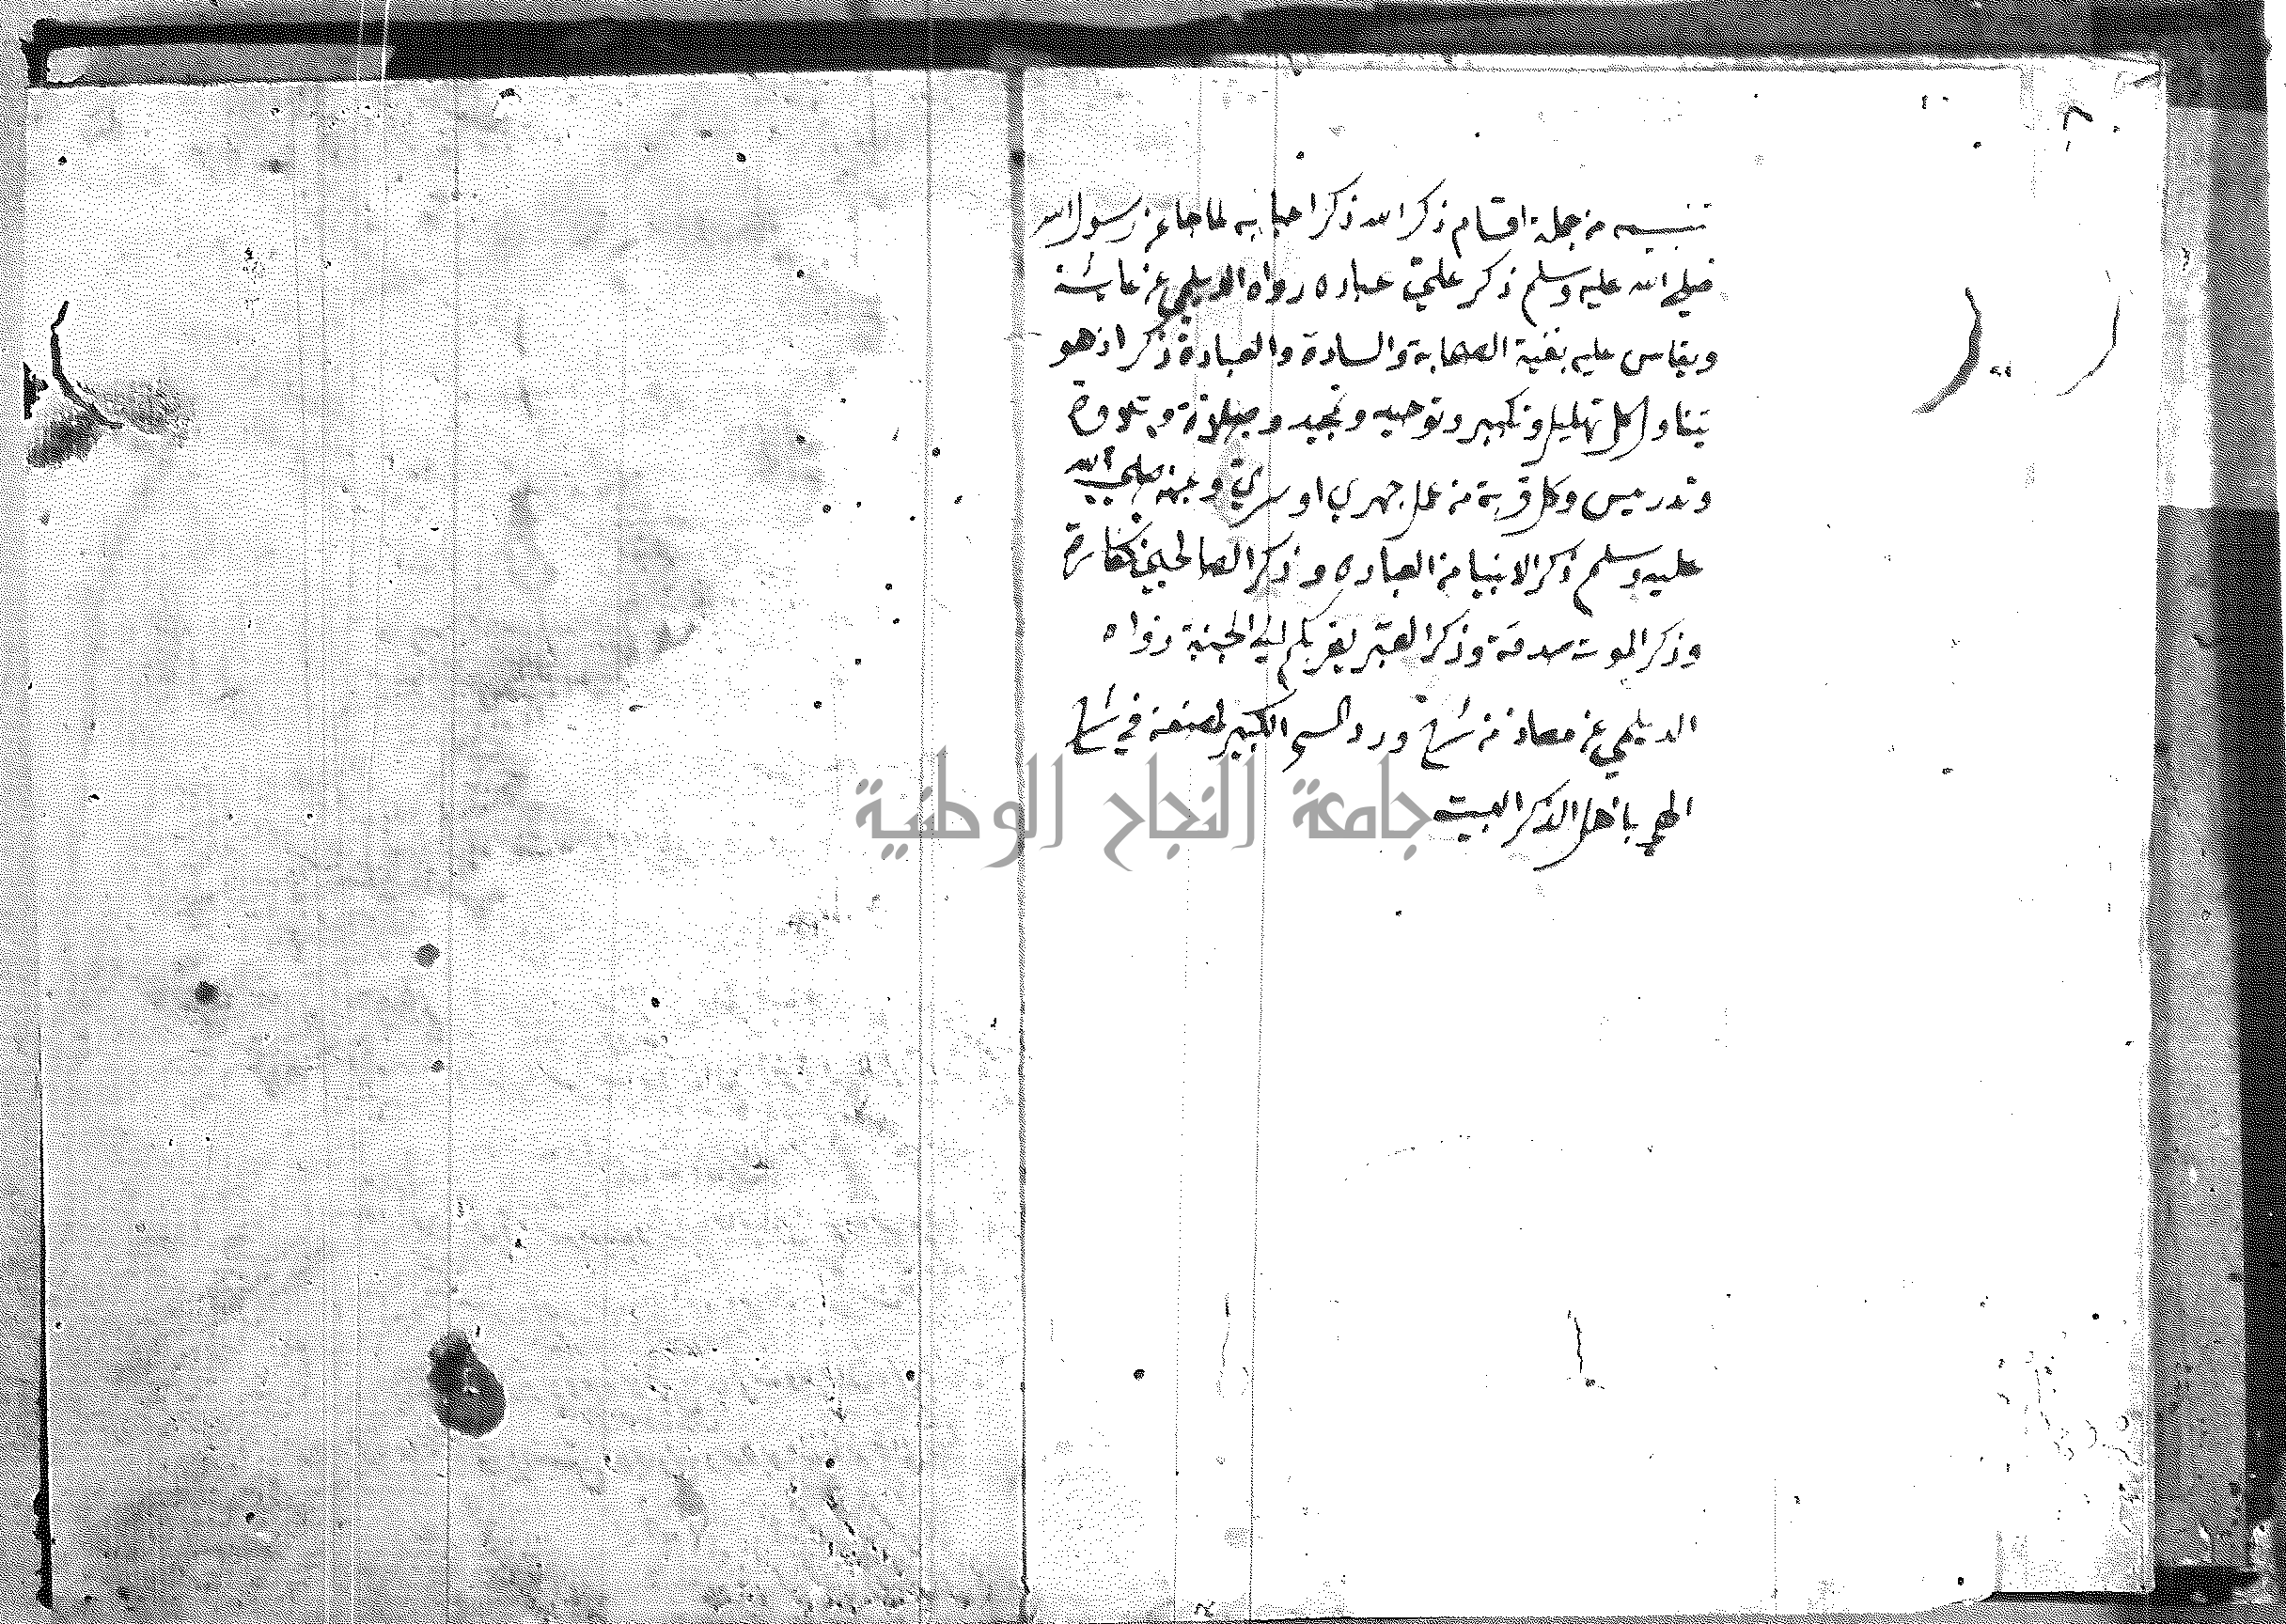 تنبيه من جملة اقسام ذكر الله ذكر احبابه لما جا عن رسول الله
صلي الله عليه وسلم ذكر علي عباده رواه الديلمي عن عايشة
ويقاس عليه بقية الصحابة والسادة والعبادة ذكر اذ هو
يتناول كل تهليل وتكبير وتوحيد وتمجيد وصلاة وتلاوة
وتدريس وكل قربة من عمل جهري او سري وعنه صلي الله
عليه وسلم ذكر الانبيا من العباده وذكر الصالحين كفارة
وذكر الموت صدقة وذكر القبر يقربكم الي الجنة رواه
الديلمي عن معاذ من شرح ورد السحر الكبير لمصنفه في شرح
الهي باهل الذكر البيت
جامعة النجاح الوطنية